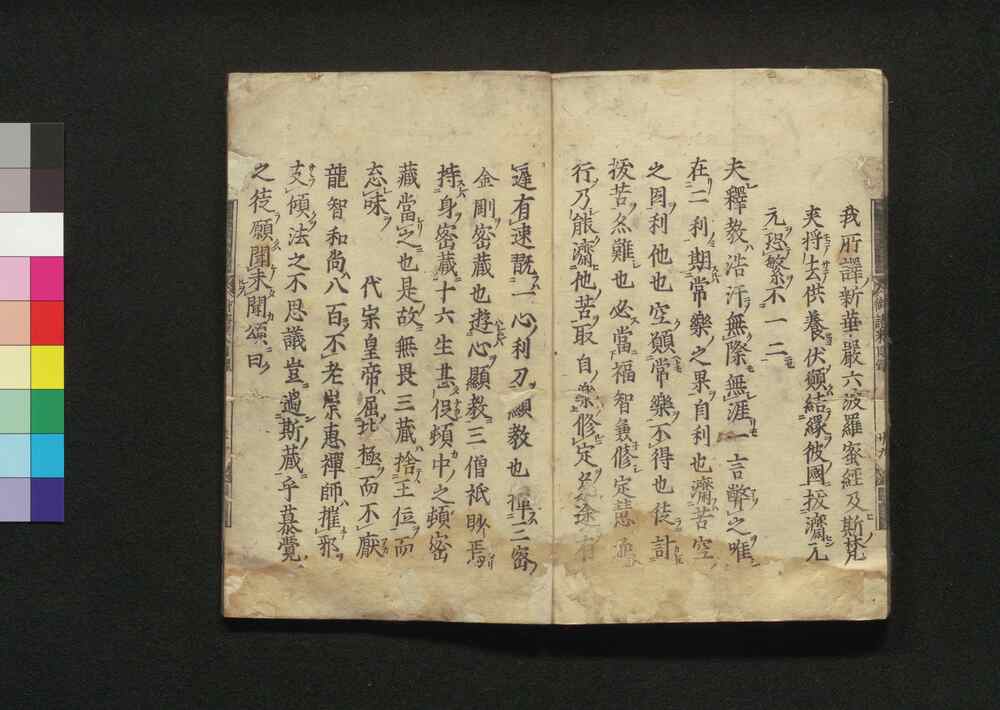 我所譯新華嚴六波羅蜜經及斯梵
夾將去供養伏願結縁彼國拔濟元
元恐繁不一二
夫釋教浩汗無際無涯一言弊之唯
在二利期常樂之果自利也濟苦空
之因利他也空願常樂不得也徒計
拔苦亦難也必當福智兼修定慧並
行乃能濟他苦取自樂修定多途有
遲有速翫一心利刀顯教也揮三密
金剛密藏也遊心顯教三僧祇眇焉
持身密藏十六生甚促頓中之頓密
藏當之也是故無畏三藏捨王位而
忘味
代宗皇帝屈北極而不厭
龍智和尚八百不老崇惠禪師摧邪
支傾法之不思議豈過斯藏乎慕覺
之徒願聞未聞頌曰